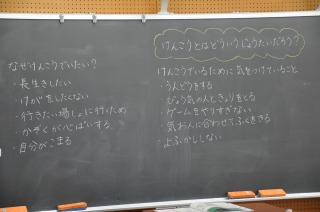 なぜけんこうでいたい?
・長生きしたい
・けがをしたくない
・行きたい場しょに行くため
・かぞくが心ぱいする
・自分がこまる
けんこうとはどういうじょうたいだろう?
けんこうでいるために気をつけていること
・うんどうをする
・びょう気の人ときょりをとる
・ゲームをやりすぎない
・気おんに合わせてふくをきる
・よふかししない